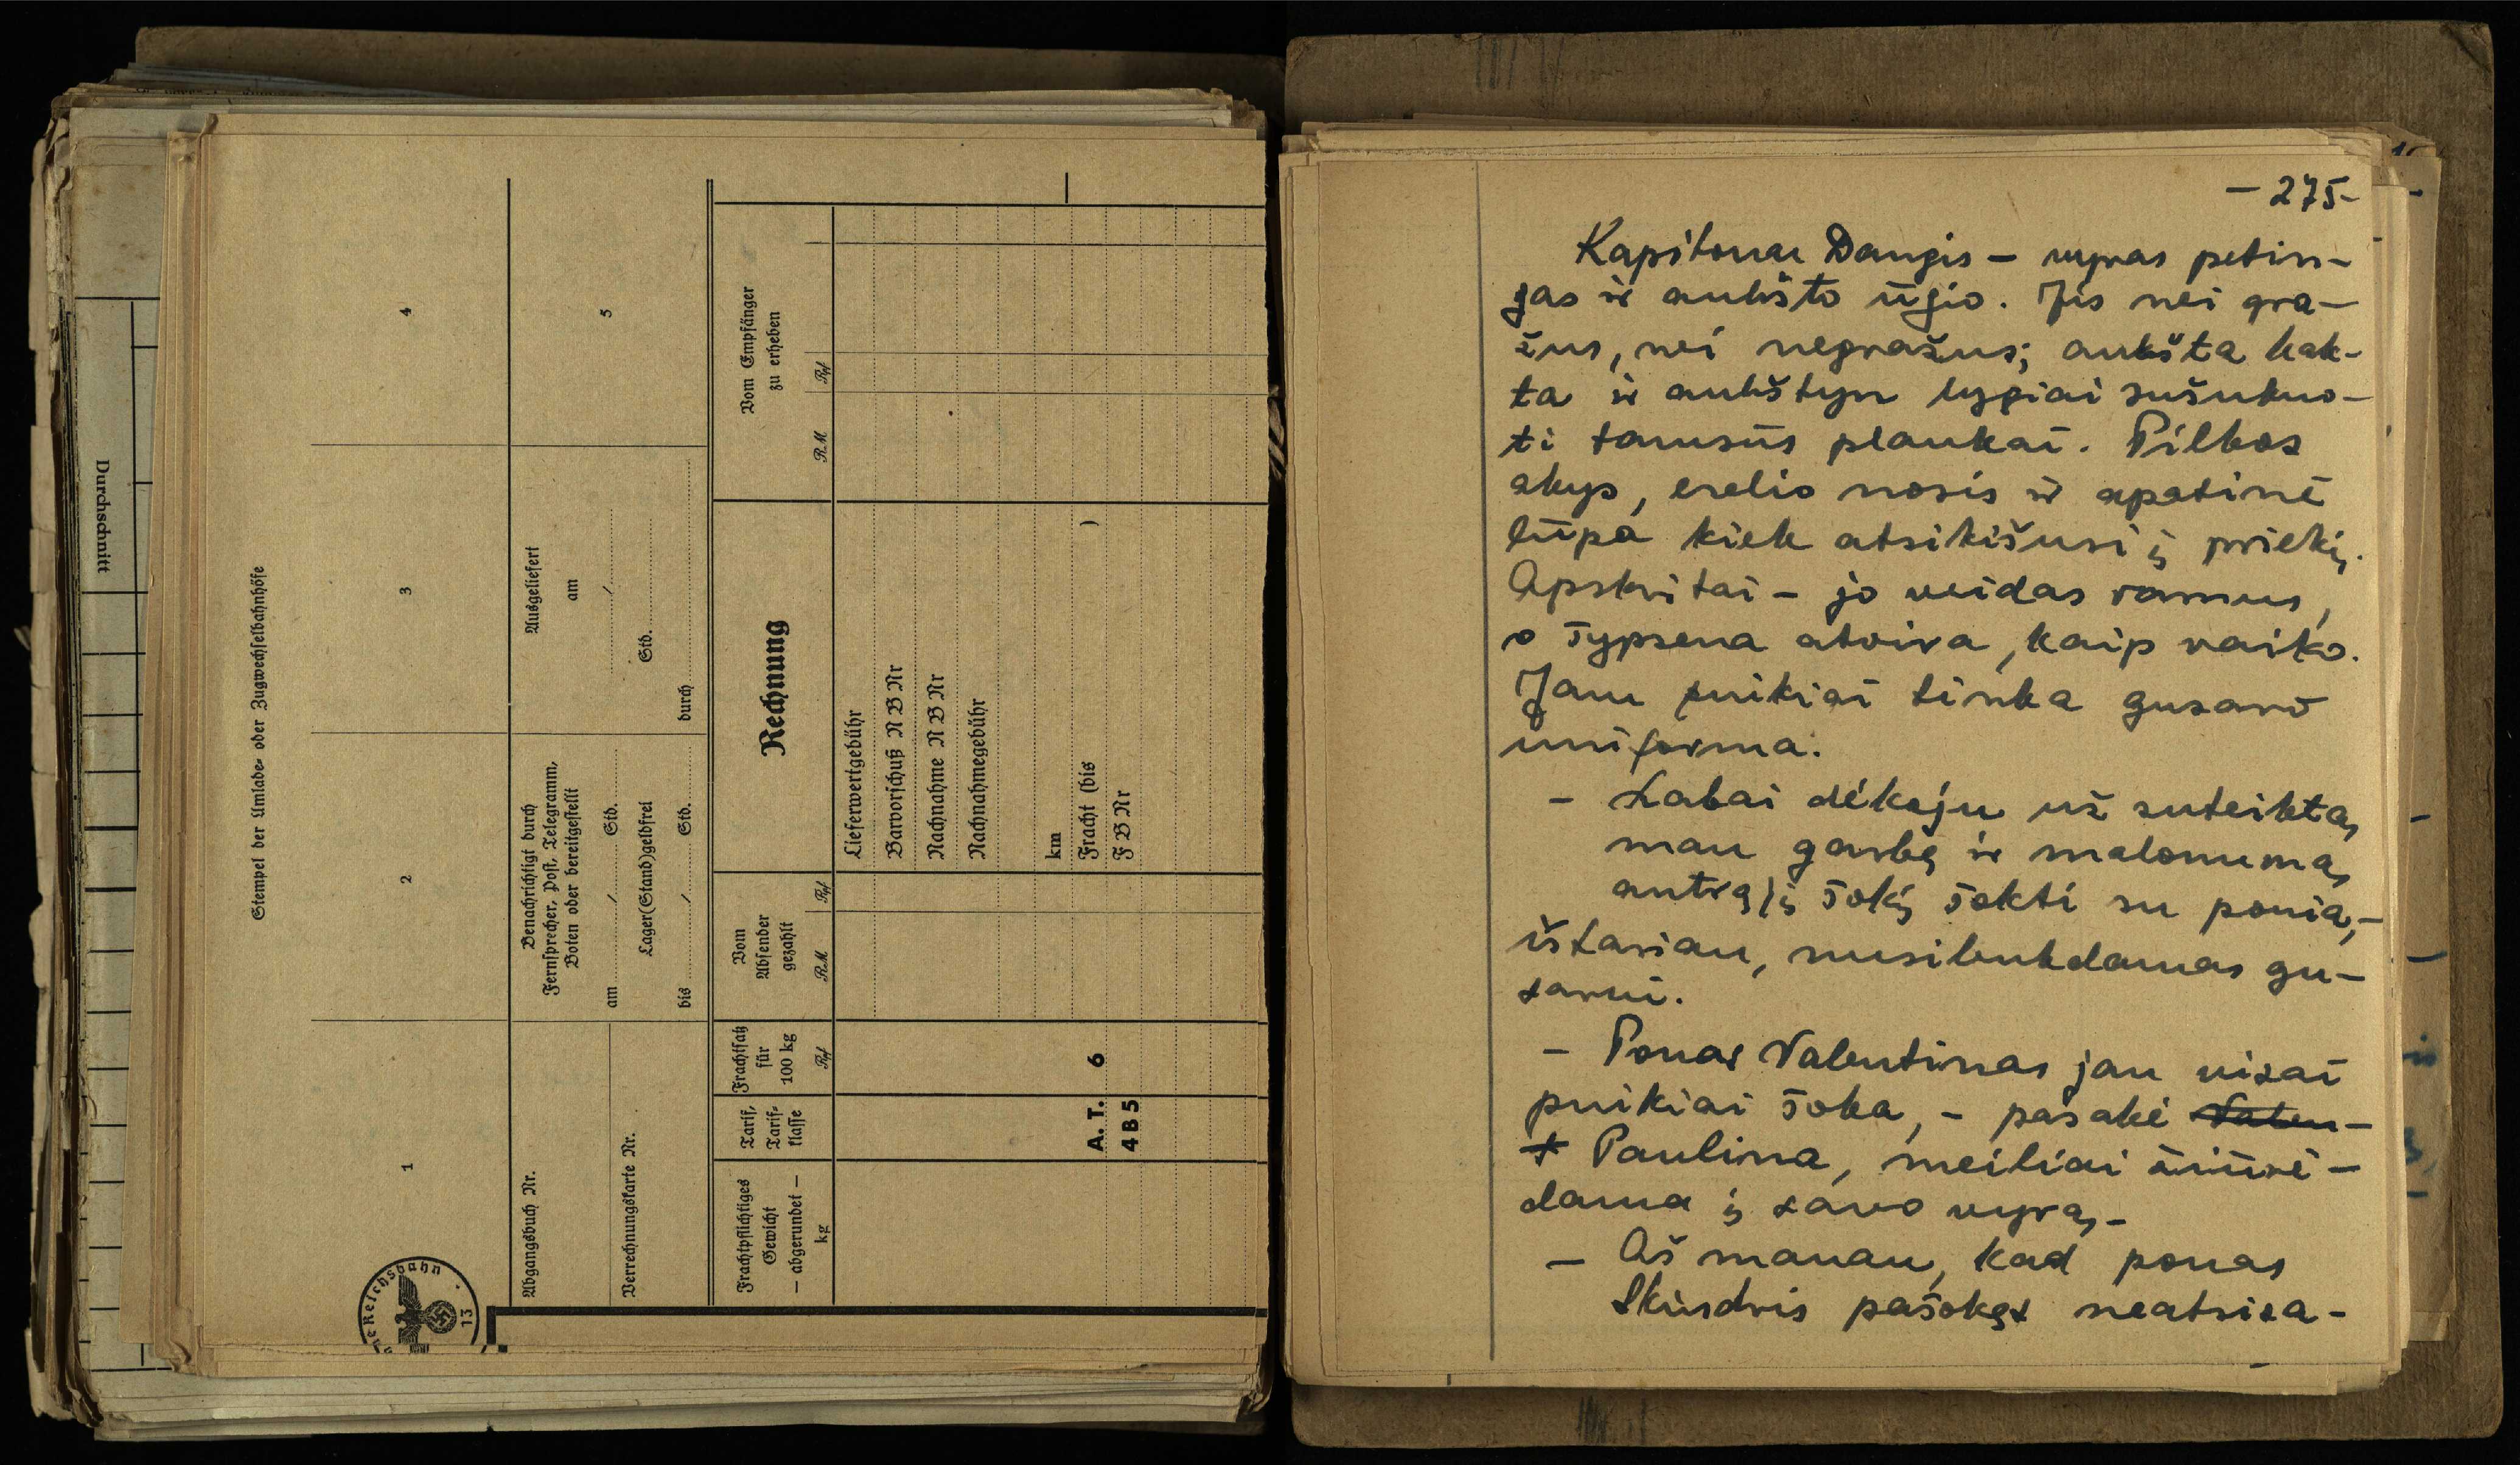 Durchschnitt
Stempel der Umlade- oder Zugwechselbahnhöfe
1
2
3
4
Abgangsbuch Nr.
Verrechnungskarte Nr.
Benachrichtigt durch
Fernsprecher, Post, Telegramm,
Boten oder bereitgestellt
am ........./......... Std. .........
Lager(Stand)geldfrei
bis ........./......... Std. .........
Ausgeliefert
am
........./.........
Std. .........
durch .........
5
Reichsbahn
13
Frachtpflichtiges
Gewicht
— abgerundet —
kg
Tarif,
Tarif-
klasse
Frachtsatz
für
100 kg
Rpf
Vom
Absender
gezahlt
RM Rpf
Rechnung
Vom Empfänger
zu erheben
RM Rpf
Lieferwertgebühr
Barvorschuß N B Nr
Nachnahme N B Nr
Nachnahmegebühr
km
A. T. 6 Fracht (bis )
4 B 5 F B Nr
- 275-
Kapitonas Daugis – vyras petin-
gas ir aukšto ūgio. Jis nei gra-
žus, nei negražus; aukšta kak-
ta ir aukštyn lygiai sušukuo-
ti tamsūs plaukai. Pilkos
akys, erelio nosis ir apatinė
lūpa kiek atsikišusi į priekį.
Apskritai – jo veidas ramus,
o šypsena atvira, kaip vaiko.
Jam puikiai tinka gusaro
uniforma.
– Labai dėkoju už suteiktą
man garbę ir malonumą
antrąjį šokį šokti su ponia, –
ištariau, nusilenkdamas gu-
sarui.
– Ponas Valentinas jau visai
puikiai šoka, – pasakė Valen-
t Paulina, meiliai žiūrė-
dama į savo vyrą, –
– Aš manau, kad ponas
Skirdvis pašokęs neatsisa-